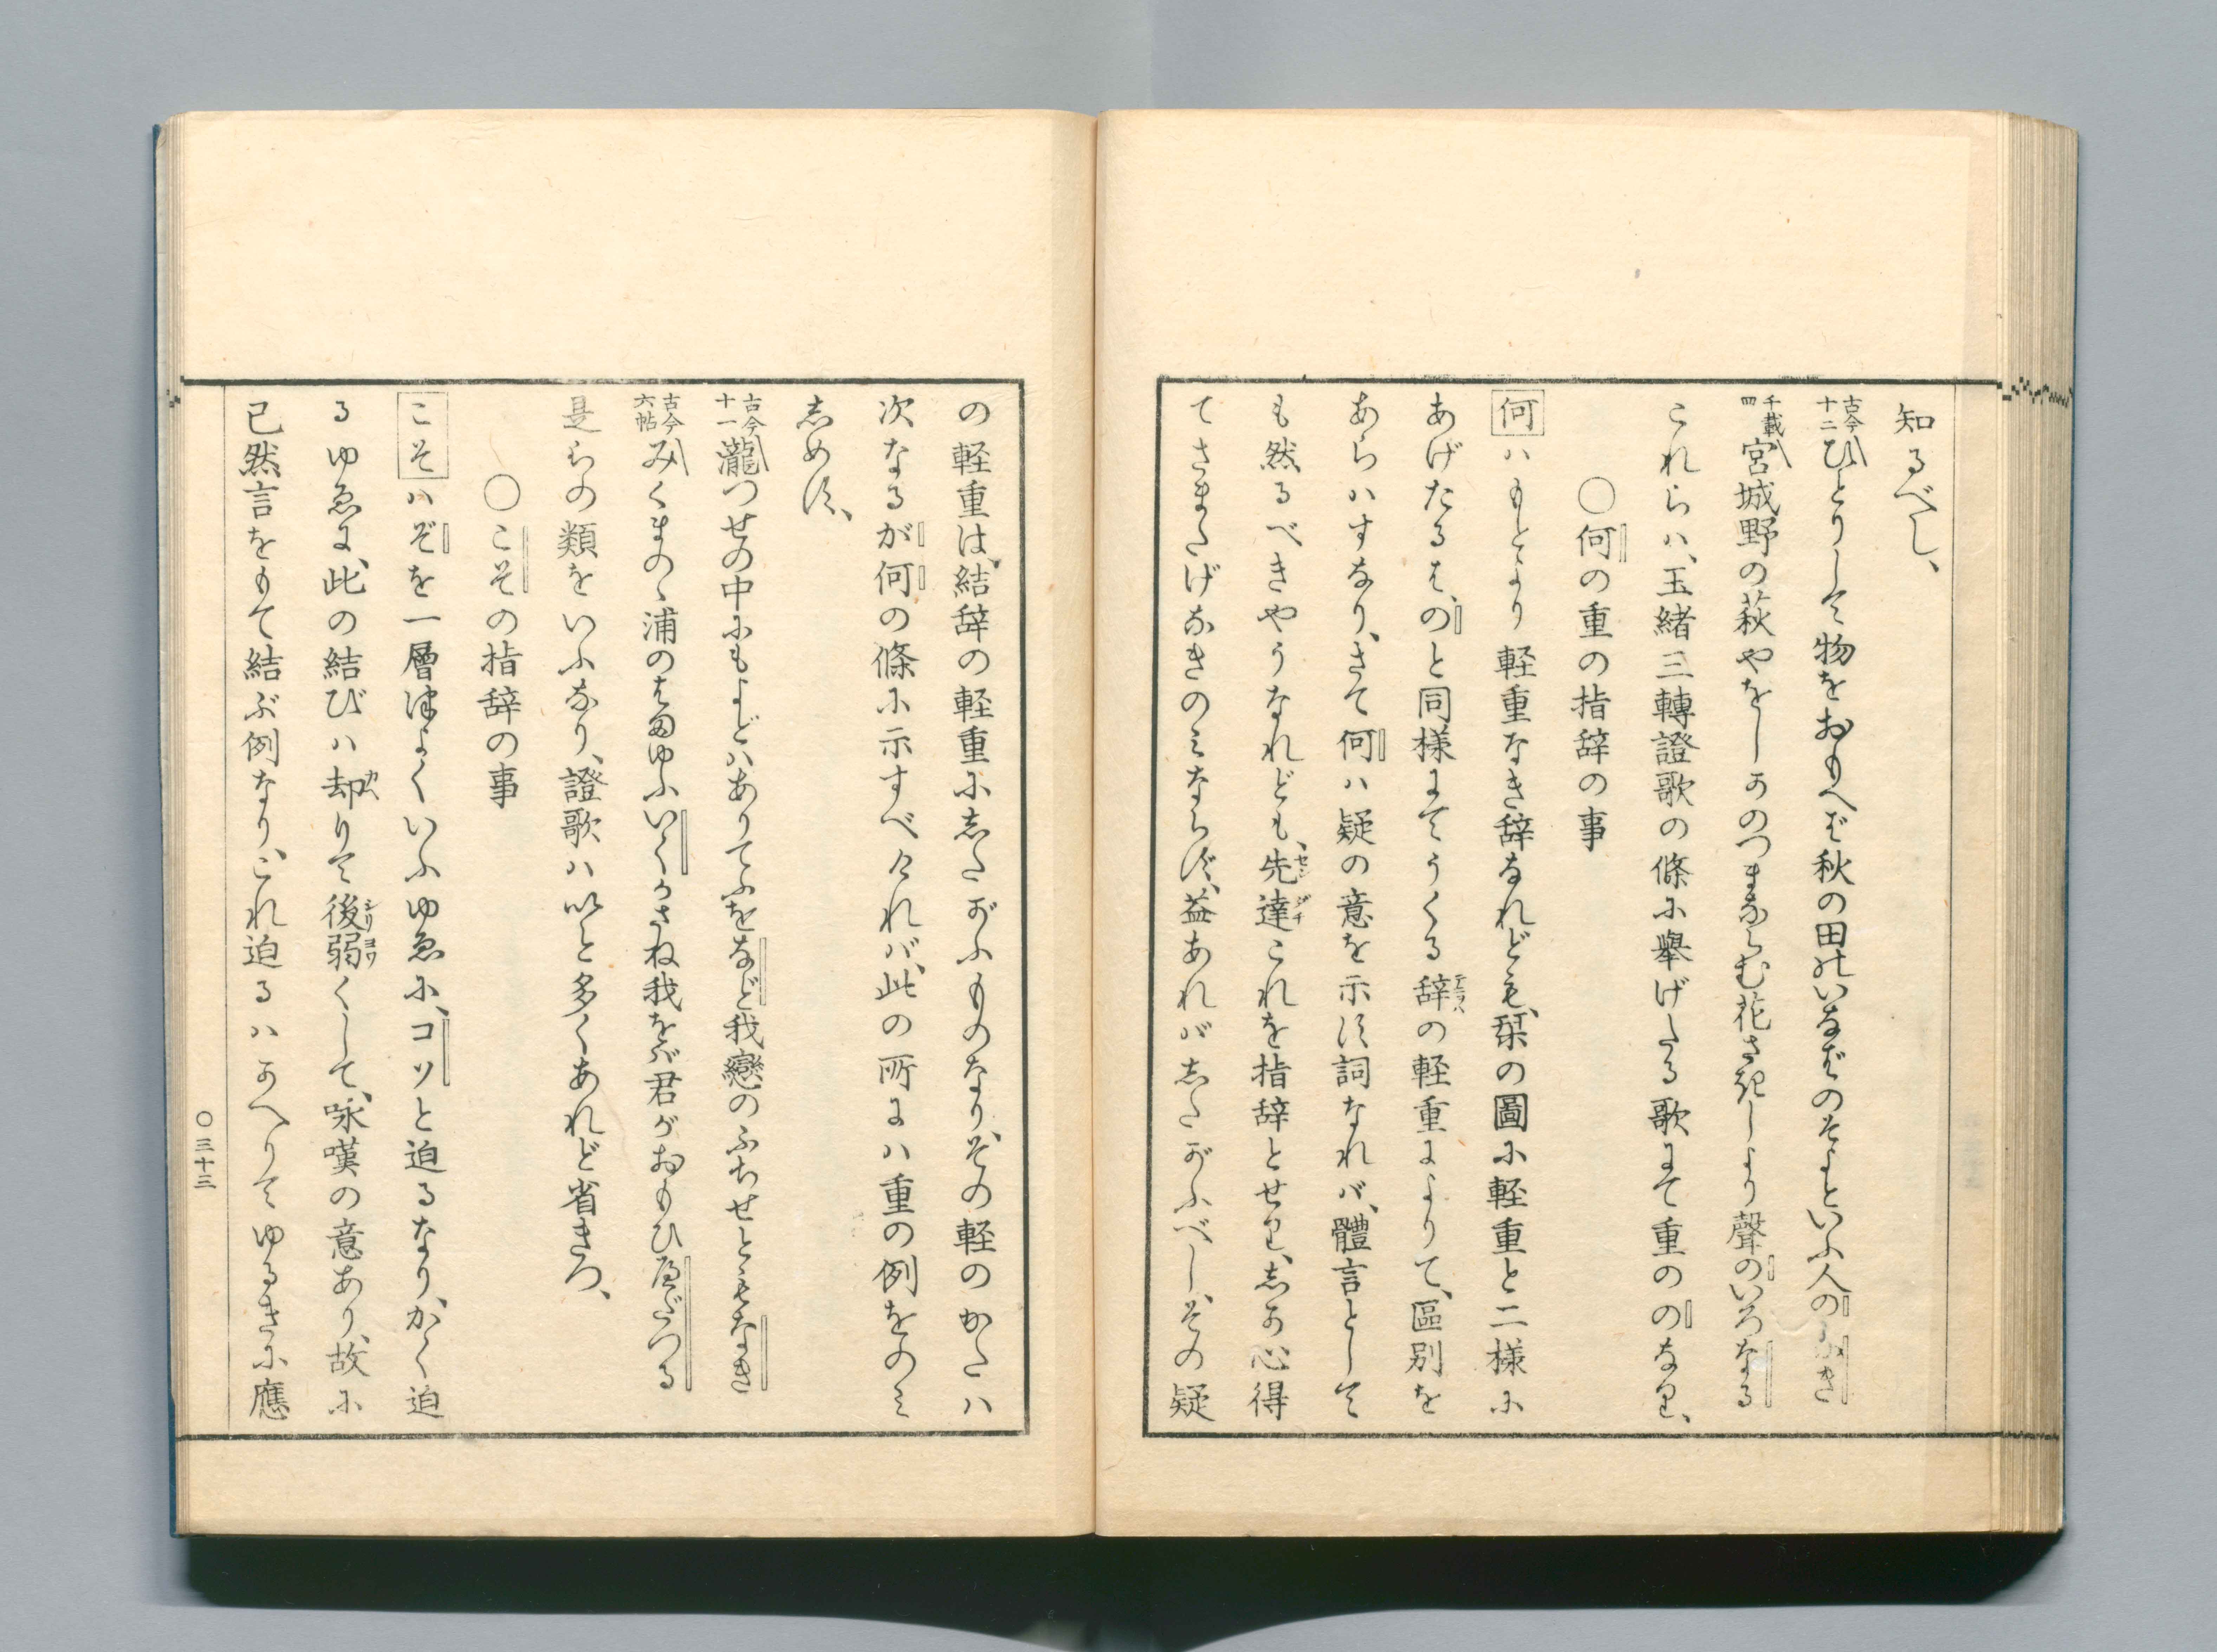 知るべし、
古今十二 ひとりして物をおもへば秋の田のいなばのそよといふ人のなき
千載四 宮城野の萩やをしかのつまならむ花さきしより聲のいろなる
これらハ、玉緒三轉證歌の條に擧げたる歌にて重ののなり、
〇何の重の指辞の事
何ハもとより軽重なき辞なれども、栞の圖に軽重と二様に
あげたるは、のと同様にてうくる辞の軽重によりて、區別を
あらハすなり、さて何ハ疑の意を示す詞なれバ、體言として
も然るべきやうなれども、先達センダチこれを指辞とせり、しか心得
てさまたげなきのミならず、益あれバしたがふべし、その疑
の軽重は、結辞の軽重にしたがふものなり、その軽のかたハ
次なるが何の條に示すべけれバ、此の所にハ重の例をのミ
しめす、
古今十一 瀧つせの中にもよどハありてふをなど我戀のふちせともなき
古今六帖 みくまのゝ浦のはまゆふいくかさね我をバ君がおもひへだつる
是らの類をいふなり、證歌ハいと多くあれど省きつ、
〇こその指辞の事
こそハぞを一層つよくいふゆゑに、コソと迫るなり、かく迫
るゆゑに、此の結びハ却カヘりて後弱シリヨワくして、咏嘆の意あり、故に
已然言をもて結ぶ例なり、これ迫るハかへりてゆるきに應
〇三十三